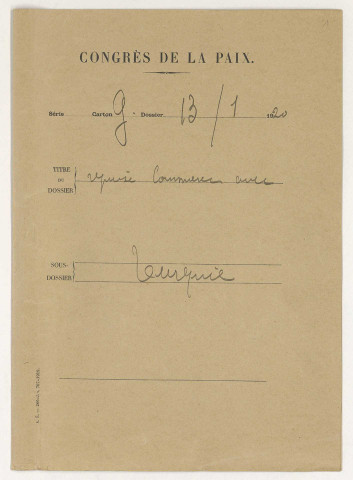 CONGRÈS DE LA PAIX.
Série Carton G. Dossier. 13/1 1920
TITRE DU DOSSIER { reprise Commerce avec
SOUS-DOSSIER { Turquie